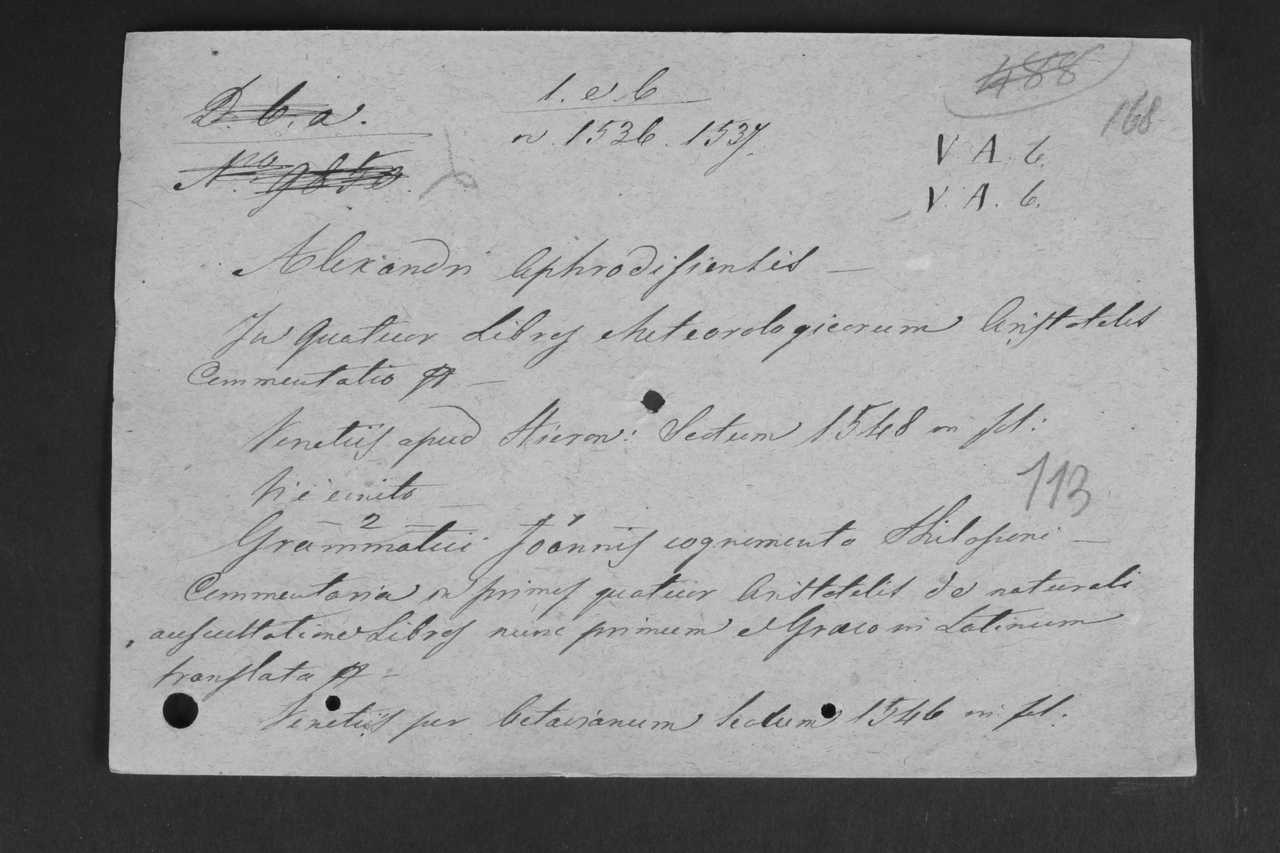 D. b. a.
Nro 9850.
1. e b
n 1536. 1537.
488
168
V A. 6.
V. A. 6.
Alexandri Aphrodisientis —
In Quatuor Libros Meteorologicorum Aristotelis
Commentatio —
Venetiis apud Hieron: Scotum 1548 in fol:
113
Grammatici Joannis cognomento Philoponi —
Commentaria in primos quatuor Aristotelis de naturali
auscultatione Libros nunc primum e Graeco in Latinum
translata —
Venetiis per Octavianum Scotum 1546 in fol: